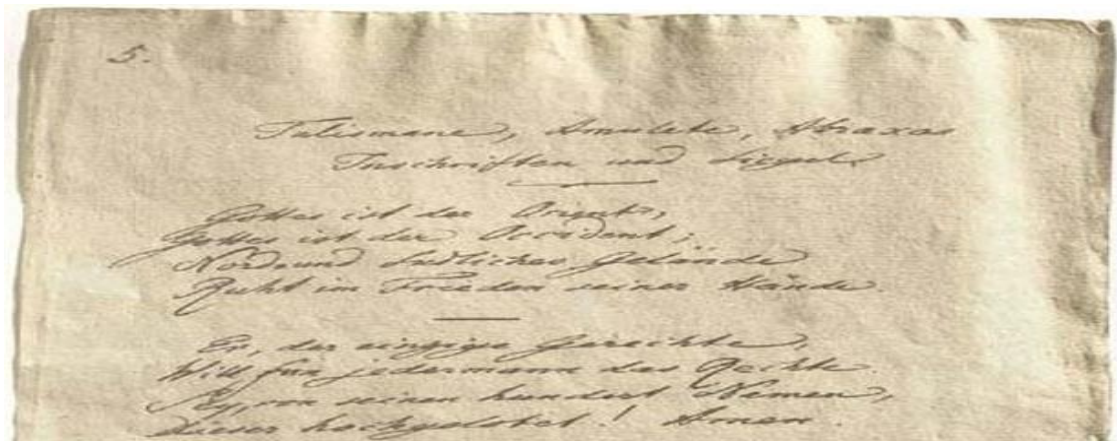 5.
Talismane, Amulete, Abraxas
Inschriften und Siegel.
Gottes ist der Orient,
Gottes ist der Occident;
Nord und Südliches Gelände
Ruht im Frieden seiner Hände.
Er, der einzige Gerechte,
Will für jedermann das Rechte.
Sey, von seinen hundert Namen,
Dieser hochgelobet! Amen.